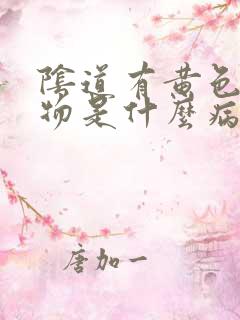 陰道有黄色
物是什麼病
唐加一